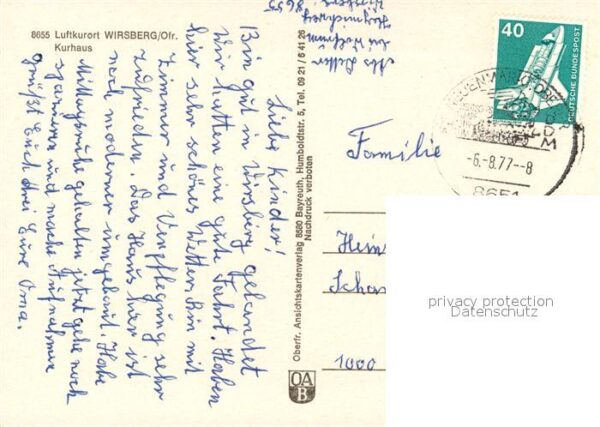 8655 Luftkurort WIRSBERG/Ofr.
Kurhaus
Liebe Kinder!
Bin gut in Wirsberg gelandet
Wir hatten eine gute Fahrt. Haben
hier sehr schönes Wetter. Bin mit
Zimmer und Verpflegung sehr
zufrieden. Das Haus hier ist
noch moderner umgebaut. Habe
Mittagsruhe gehalten jetzt gehe noch
spazieren und mache Aufnahmen
grüßt Euch drei Eure Oma.
Oberfr. Ansichtskartenverlag 8580 Bayreuth, Humboldtstr. 5, Tel. 09 21 / 6 41 26
Nachdruck verboten
OA
B
8655
40
DEUTSCHE BUNDESPOST
-6.-8.77--8
8651
Familie
Hein
Scha
1000
privacy protection
Datenschutz